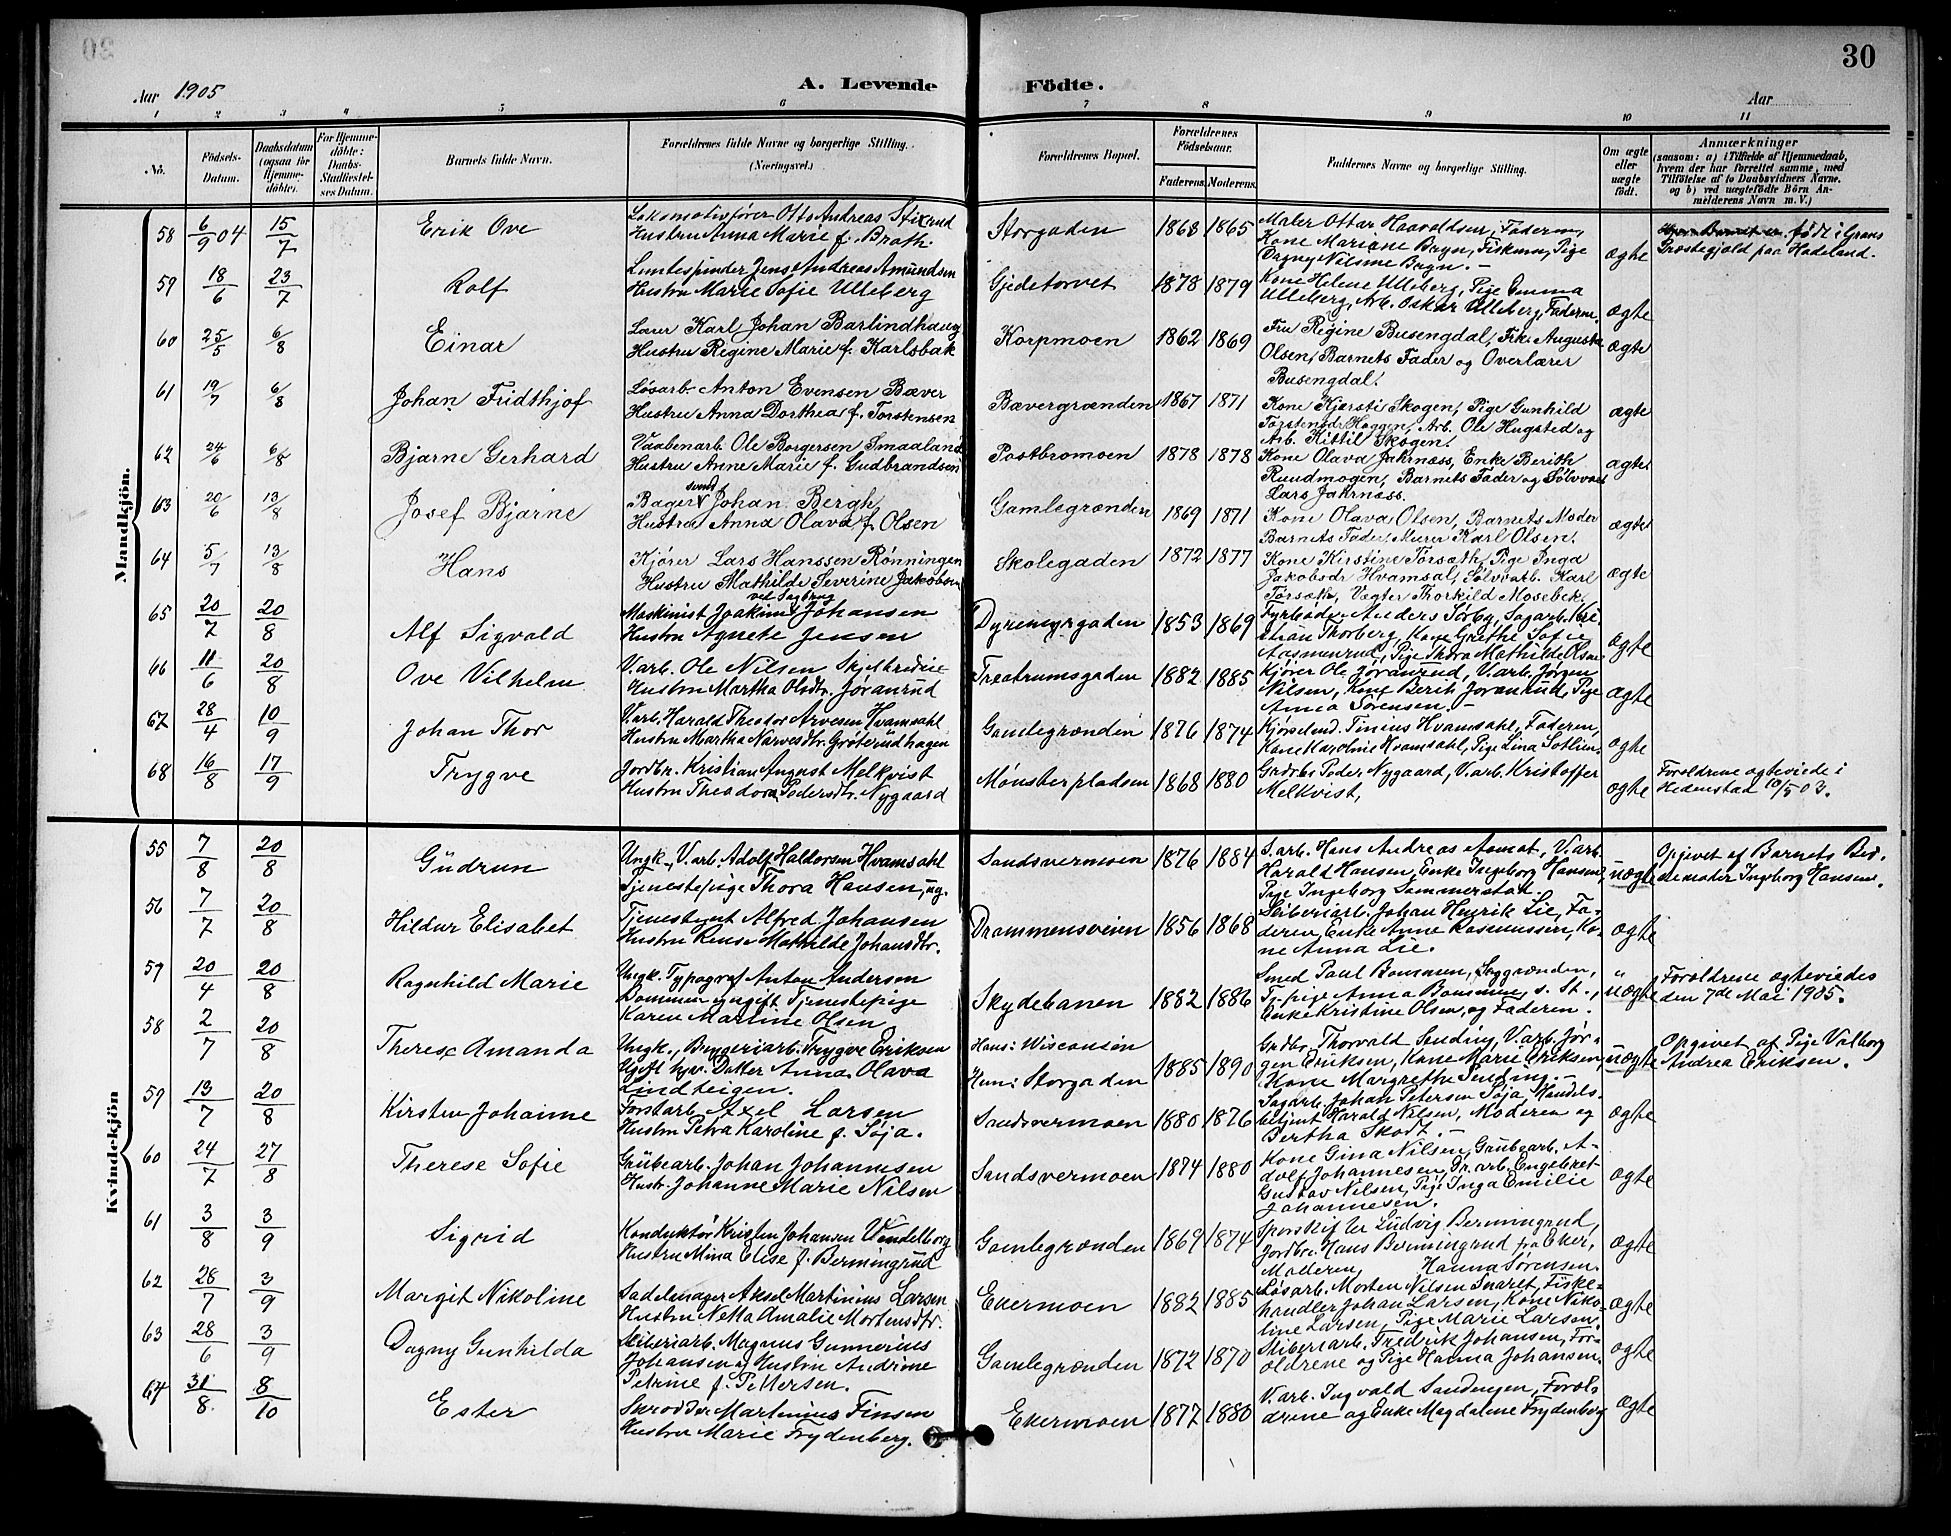 30
Aar 1905
A. Levende Födte.
Aar
1 2 3 4 5 6 7 8 9 10 11
No.
Födsels-Datum.
Daabsdatum (ogsaa for Hjemmedöbte).
For Hjemmedöbte: Daabs-Stadfæstelses Datum.
Barnets fulde Navn.
Forældrenes fulde Navne og borgerlige Stilling. (Næringsvei.)
Forældrenes Bopæl.
Forældrenes Födselsaar.
Faderens. Moderens.
Faddernes Navne og borgerlige Stilling.
Om ægte eller uægte födt.
Anmærkninger
(saasom: a) i Tilfælde af Hjemmedaab, hvem der har forrettet samme, med Tilföielse af to Daabsvidners Navne, og b) ved uægtefödte Börn Anmelderens Navn m. V.)
Mandkjön.
58 6/9 04 15/7 Erik Ove
Lokomotivfører Otto Andreas Stixrud
Hustru Anna Marie f. Brath.
Storgaden 1868 1865
Maler Ottar Haavoldsen, Faderen,
Kone Mariane Bryn, Pige
Dagny Nilsine Bryn.
ægte
født i Grans
Præstegjæld paa Hadeland.
59 18/6 23/7 Rolf
Luntespinder Jens Andreas Amundsen
Hustru Marie Sofie Ulleberg
Gjedetorvet 1878 1879
Kone Helene Ulleberg, Pige Emma
Ulleberg, Arb. Oskar Ulleberg, Faderen.
ægte
60 25/5 6/8 Einar
Lærer Karl Johan Barlindhaug
Hustru Regine Marie f. Karlsbak
Korpmoen 1862 1869
Fru Regine Busengdal, Frk. Augusta
Olsen, Barnets Fader og Overlærer
Busengdal.
ægte
61 19/7 6/8 Johan Fridthjof
Løsarb. Anton Evensen Bæver
Hustru Anna Dorthea f. Torstensen
Bævergrænden 1867 1871
Kone Kjersti Skogen, Pige Gunhild
Torstensdr. Haggen, Arb. Ole Hugsted og
Arb. Kittil Skogen.
ægte
62 24/6 6/8 Bjarne Gerhard
Vaabenarb. Ole Borgersen Smaaland
Hustru Anne Marie f. Gudbrandsen
Postbromoen 1878 1878
Kone Olava Jahrnæss, Enke Berith
Ruudmogen, Barnets Fader og Sølvvær
Lars Jahrnæss.
ægte
63 20/6 13/8 Josef Bjarne
Bagersvend Johan Bergh,
Hustru Anna Olava f. Olsen
Gamlegrænden 1869 1871
Kone Olava Olsen, Barnets Moder
Barnets Fader, Murer Karl Olsen.
ægte
64 5/7 13/8 Hans
Kjører Lars Hanssen Rønningen
Hustru Mathilde Severine Jakobsen
Skolegaden 1872 1877
Kone Kirstine Torsæth, Pige Inga
Jakobsdr Hvamsal, Sølvarb. Karl
Torsæth, Vægter Thorkild Mosebek.
ægte
65 20/7 20/8 Alf Sigvald
Maskinist ved Sagbrug Joakim Johansen
Hustru Agnete Jensen
Dyremyrgaden 1853 1869
Fyrbøder Anders Sørby, Sagarb. Kri-
stian Thorberg, Kone Grethe Sofie
Aasmunrud, Pige Thora Mathilde Olsen
ægte
66 11/6 20/8 Ove Vilhelm
V.arb. Ole Nilsen Skjelbredeie
Hustru Martha Olsdtr. Jøranrud
Treatrumsgaden 1882 1885
Kjører Ole Jøranrud, V.arb. Jørgen
Nilsen, Kone Berit Jøranrud, Pige
Anna Sørensen.
ægte
67 28/4 10/9 Johan Thor
V.arb. Harald Theodor Arvesen Hvamsahl
Hustru Martha Narvesdtr. Grøterudhagen
Gamlegrænden 1876 1874
Kjørselsd. Tinius Hvamsahl, Faderen,
Kone Karoline Hvamsahl, Pige Lina Sotlien.
ægte
68 16/8 17/9 Trygve
Jordbr. Kristian August Melkvist
Hustru Theodora Pedersdtr. Nygaard
Mønsterpladsen 1868 1880
Grdbr. Peder Nygaard, V.arb. Kristoffer
Melkvist,
ægte
Forældrene ægteviede i
Hedenstad 10/5 03.
Kvindekjön
55 7/8 20/8 Gudrun
Ungk., V.arb. Adolf Haldorsen Hvamsahl
Tjenestepige Thora Hansen, ug.
Sandsvermoen 1876 1884
S.arb. Hans Andreas Aamat, V.arb.
Harald Hansen, Enke Ingeborg Hansen,
Pige Ingeborg Sommerstad.
uægte
Opgivet af Barnets Bed-
stemoder Ingeborg Hansen.
56 7/7 20/8 Hildur Elisabet
Alfred Johansen
Hustru Rense Mathilde Johansdtr.
Drammensveien 1856 1868
Sliberiarb. Johan Henrik Lie, Fa-
deren, Enke Anne Rasmussen, Ko-
ne Anna Lie.
ægte
57 20/4 20/8 Ragnhild Marie
Ungk. Typograf Anton Andersen
Bommen og ugift Tjenestepige
Karen Martine Olsen.
Skydebanen 1882 1886
Smed Paul Bommen, Saggrænden,
Tj.pige Anna Bommen, s. St.,
Enke Kristine Olsen, og Faderen.
uægte
Forældrene ægteviedes
den 7de Mai 1905.
58 2/7 20/8 Therese Amanda
Ungk., Bryggeriarb. Trygve Eriksen
Ugift hjv. Datter Anna Olava
Lindteigen.
Hans: Wisconsin
Hun: Storgaden 1885 1890
Grdbr. Thorvald Sending, V.arb. Jør-
gen Eriksen, Kone Marie Eriksen,
Kone Margrethe Sending.
uægte
Opgivet af Pige Valborg
Andrea Eriksen.
59 13/7 20/8 Kirsten Johanne
Forstarb. Axel Larsen
Hustru Petra Karoline f. Søja.
Sandsvermoen 1880 1876
Sagarb. Johan Petersen Søja, Handels-
betjent Harald Nilsen, Moderen og
Bertha Skodt.
ægte
60 24/7 27/8 Therese Sofie
Grubearb. Johan Johannesen
Hustr. Johanne Marie Nilsen
Sandsvermoen 1874 1880
Kone Gina Nilsen, Grubearb. A-
dolf Johannesen, Gr.arb. Engebret
Gustav Nilsen, Pige Inga Emilie
Johannesen.
ægte
61 3/8 3/9 Sigrid
Konduktør Kristen Johansen Vindelborg
Hustru Mina Elise f. Bermingrud
Gamlegrænden 1869 1874
Sporskifter Ludvig Bermingrud,
Jordbr. Hans Bermingrud fra Eker,
Moderen, Hanna Sørensen.
ægte
62 28/7 3/9 Margit Nikoline
Sadelmager Aksel Martinius Larsen
Hustru Netta Amalie Mortensdtr.
Ekermoen 1882 1885
Løsarb. Morten Nilsen Svaret, Fiske-
handler Johan Larsen, Kone Niko-
line Larsen, Pige Marie Larsen.
ægte
63 28/6 3/9 Dagny Gunhilda
Sliberiarb. Magnus Gunnerius
Johansen og Hustru Andrine
Petrine f. Pettersen.
Gamlegrænden 1872 1870
Sliberiarb. Fredrik Johansen, For-
ældrene og Pige Hanna Johansen.
ægte
64 31/8 8/10 Ester
Skrædder Martinius Finsen
Hustru Marie Frydenberg.
Ekermoen 1877 1880
V.arb. Ingvald Sandengen, Foræl-
drene og Enke Magdalene Frydenberg
ægte